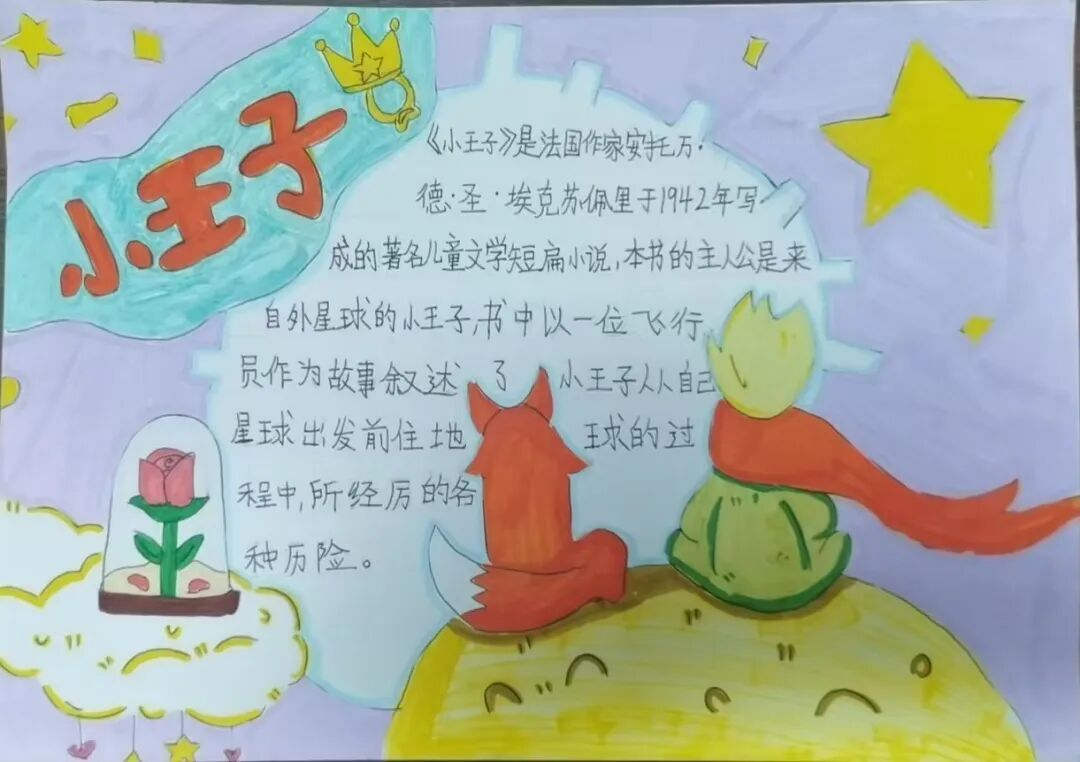 小王子
《小王子》是法国作家安托万·
德·圣·埃克苏佩里于1942年写
成的著名儿童文学短扁小说,本书的主人公是来
自外星球的小王子,书中以一位飞行
员作为故事叙述了小王子从自己
星球出发前住地球的过
程中,所经厉的各
种历险。